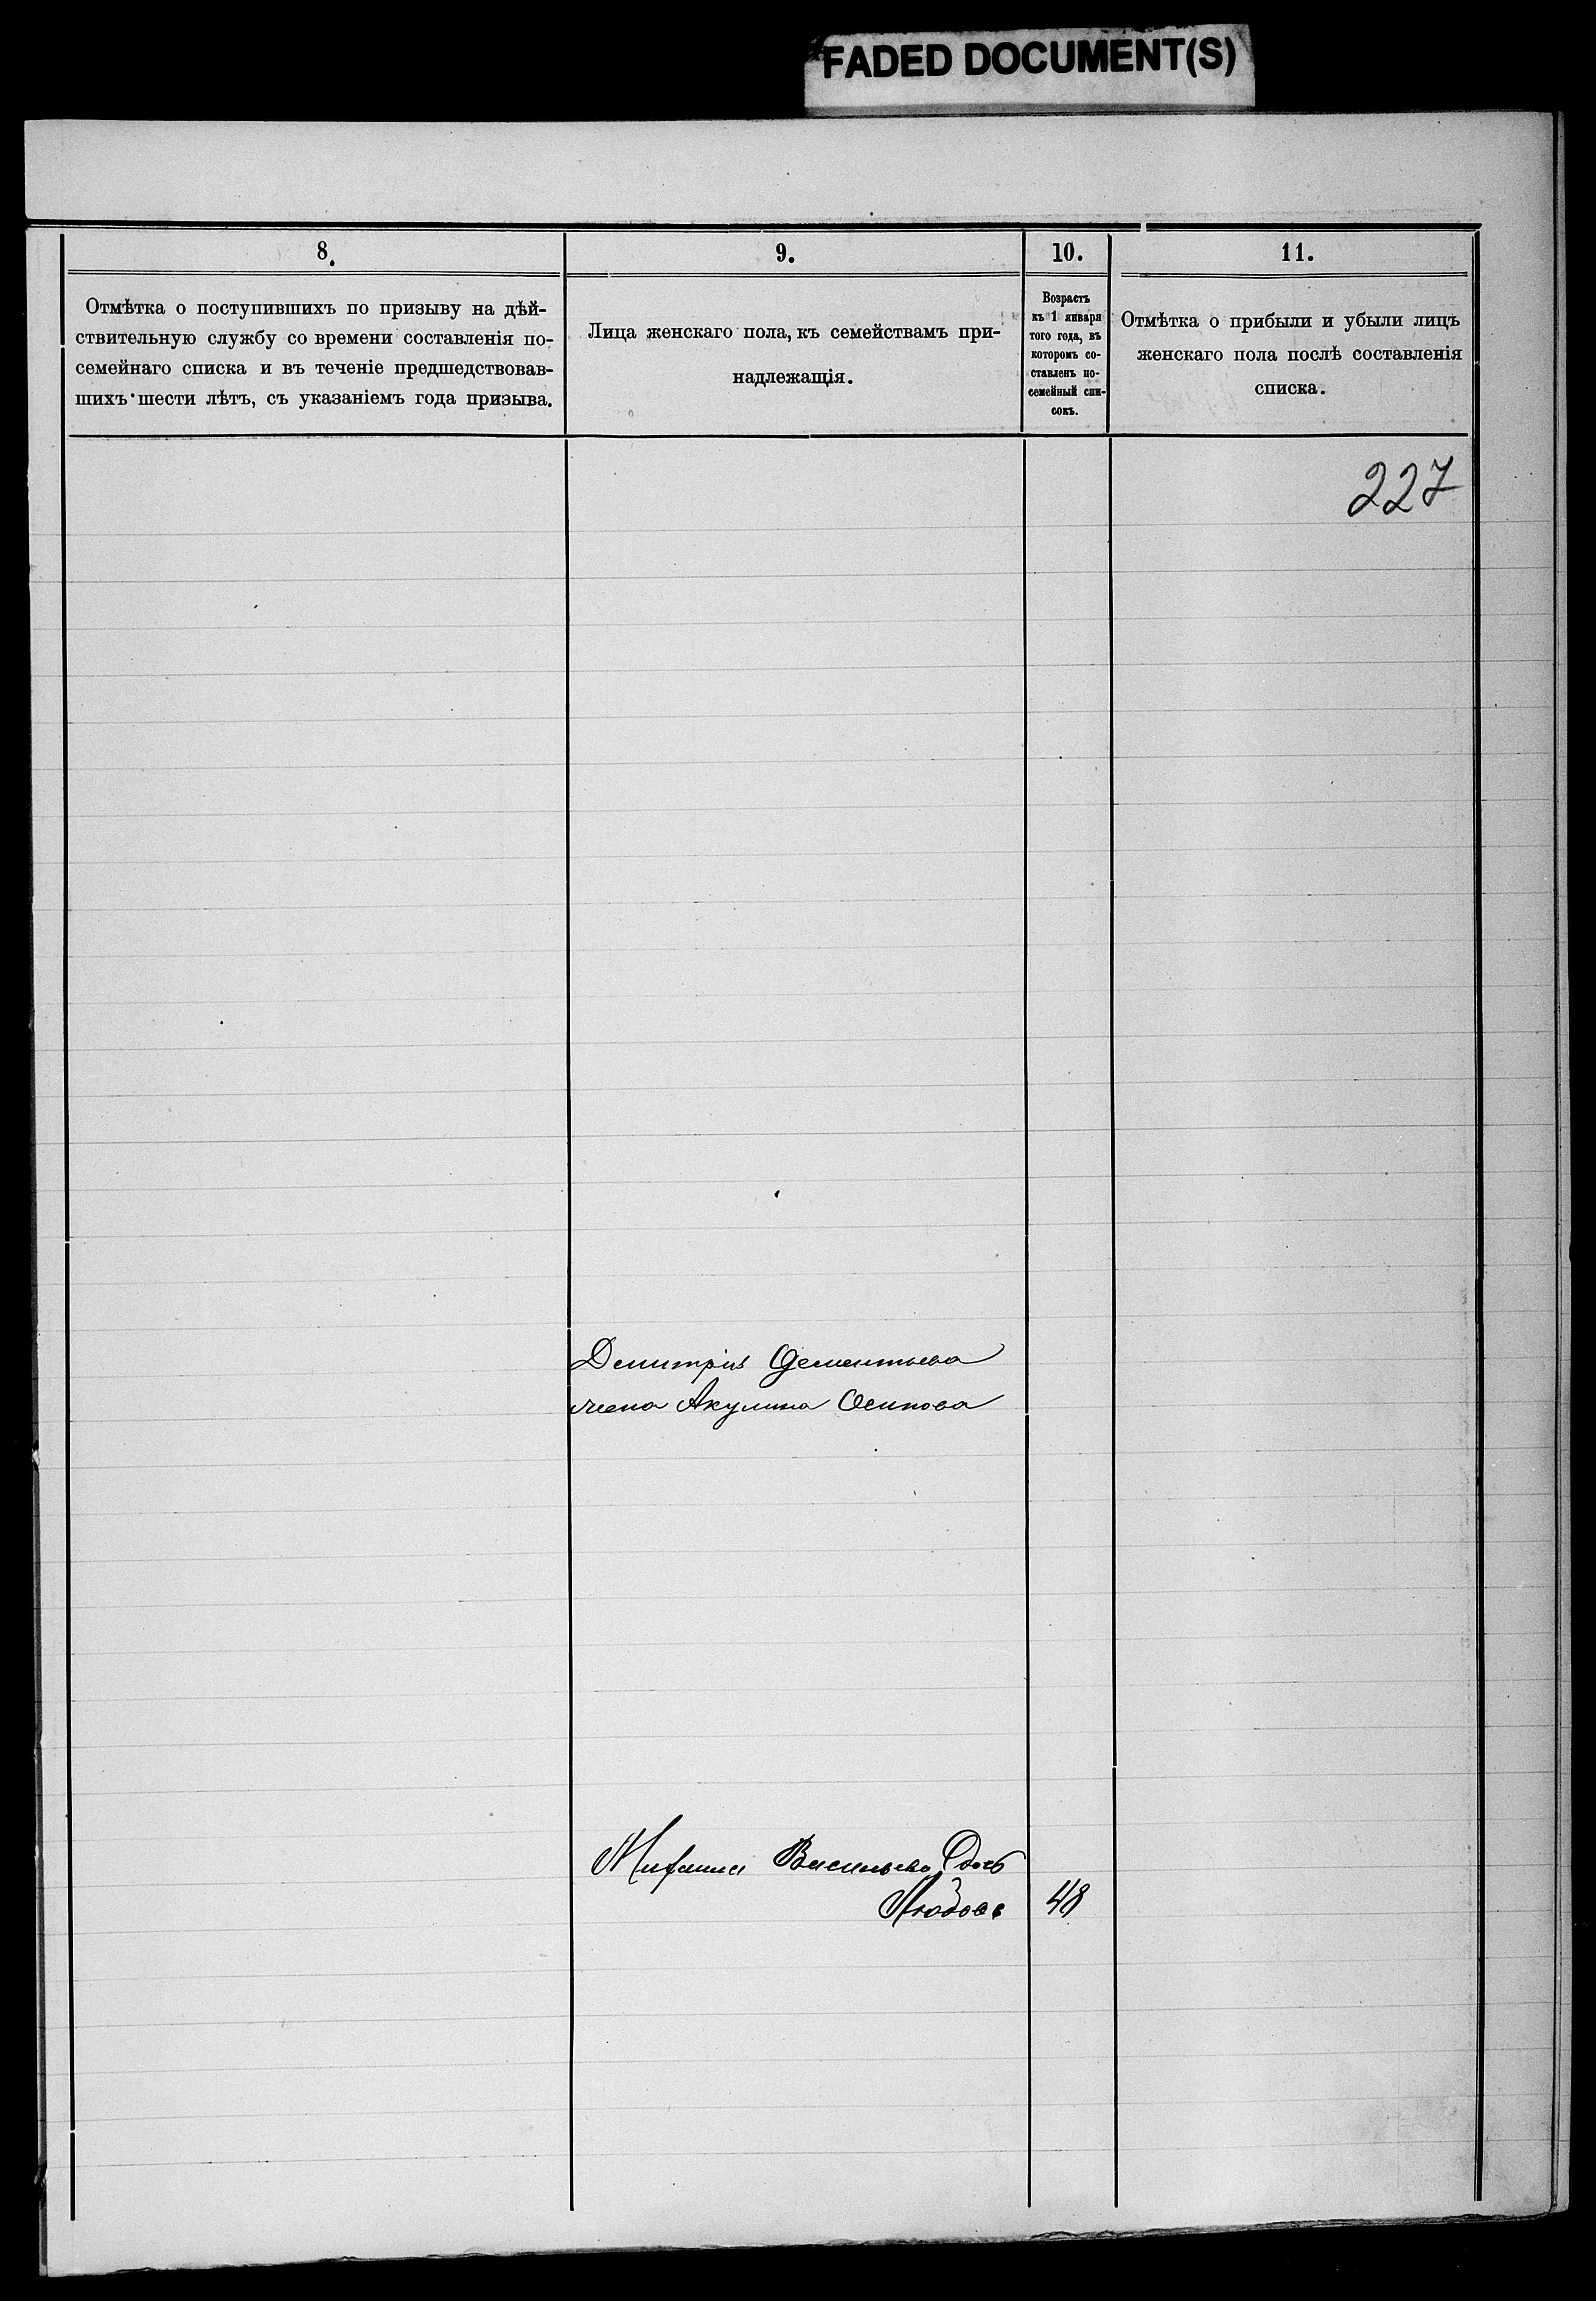 FADED DOCUMENT(S)
8.
Отмѣтка о поступившихъ по призыву на дѣй-
ствительную службу со времени составленія по-
семейнаго списка и въ теченіе предшедствовав-
шихъ шести лѣтъ, съ указаніемъ года призыва.
9.
Лица женскаго пола, къ семействамъ при-
надлежащія.
10.
Возрастъ
къ 1 января
того года, въ
которомъ со-
ставленъ по-
семейный спи-
сокъ.
11.
Отмѣтка о прибыли и убыли лицъ
женскаго пола послѣ составленія
списка.
227
Демитрія Дементьева
жена Акулина Осипова
Михаила Васильева дочь
Любовь 48